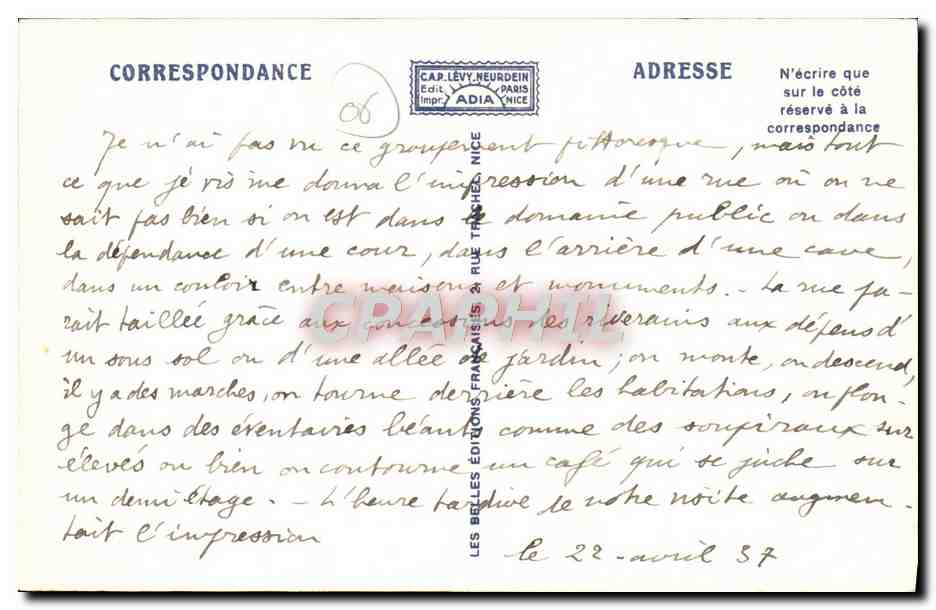 CORRESPONDANCE
C.A.P. LÉVY. NEURDEIN
Edit. PARIS
Impr. ADIA NICE
ADRESSE
N'écrire que
sur le côté
réservé à la
correspondance
06
Je n'ai pas vu ce groupement pittoresque, mais tout
ce que je vis me donna l'impression d'une rue où on ne
sait pas bien si on est dans le domaine public ou dans
la dépendance d'une cour, dans l'arrière d'une cave,
dans un couloir entre maisons et monuments. - La rue pa-
rait taillée grâce aux concessions des riverains aux dépens d'
un sous sol ou d'une allée de jardin; on monte, on descend,
il y a des marches, on tourne derrière les habitations, on plon-
ge dans des éventaires béants comme des soupiraux sur
élevés ou bien on contourne un café qui se juche sur
un demi étage. - L'heure tardive de notre visite augmen-
tait l'impression
le 22 - avril 37
LES BELLES ÉDITIONS FRANÇAISES, 2, RUE TRACHEL, NICE
CPAPHIL